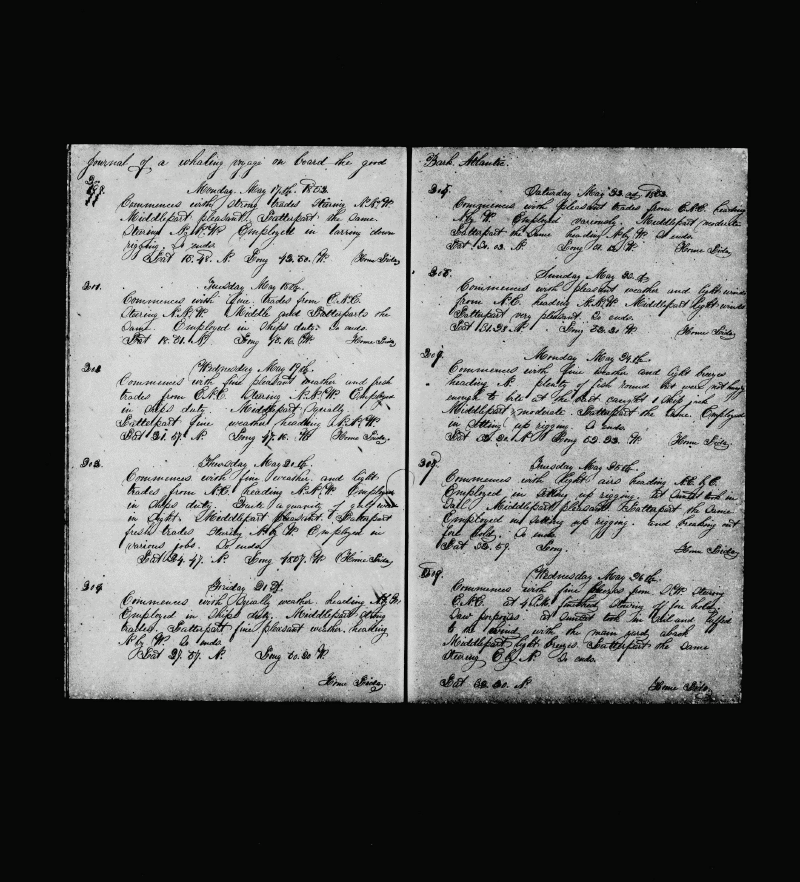 Journal of a whaling voyage on board the good
Monday May 17th 1852
Commences with strong trades stearing N.N.W
Middlepart pleasant. Latterpart the same
Stearing N.N.W Employed in tarring down
rigging. So ends
Lat 15. 48. N Long 43.50. W Home Friday
Tuesday May 18th
Commences with fine trades from E.N.E.
Stearing N.N.W Middle and Latterparts the
Same. Employed in Ships duty. So ends.
Lat 18. 01. N. Long 45.16. W Home Friday
Wednesday May 19th
Commences with fine pleasant weather and fresh
trades from E.N.E. Stearing N.N.W Employed
in ships duty. Middlepart Squally.
Latterpart fine weather heading N.N.W.
Lat 21. 07. N Long 47.16. W Home Friday
Thursday May 20th
Commences with fine weather and light
trades from N.E. heading N.N.W Employed
in ships duty. quanity of gulf weed
in Sight. Middlepart pleasant. Latterpart
fresh trades Stearing N by W. Employed in
various jobs. So ends
Lat 24. 47. N. Long W Home Friday
Friday 21st
Commences with Squally weather. heading
Employed in Ships duty. Middlepart Strong
trades. Latterpart fine pleasant weather. heading
N by W So ends.
Lat 27. 57. N. Long 50.20 W.
Home Friday.
Bark. Atlantic.
Saturday May 22 1852
Commences with pleasant trades from E.N.E. heading
N by W Employed variously. Middlepart moderate
Latterpart the same heading N by W. So ends.
Lat N Long W. Home Friday
Sunday May 23d
Commences with pleasant weather and light winds
from N.E. heading N.N.W Middlepart light winds
Latterpart very pleasant. So ends.
Lat 31.28 N Long 52.21 W Home Friday
Monday May 24th
Commences with fine weather and light breezes
heading N. plenty of fish round but were not hungry
enough to bite at the bait caught 1 Skip jack
Middlepart moderate. Latterpart the same. Employed
in Setting up rigging. So ends.
Lat 32. 20. N. Long 52.23. W Home Friday
Tuesday May 25th
Commences with light airs heading N.E. by E.
Employed in setting up rigging. at Sunset took in
Sail. Middlepart pleasant. Latterpart the Same
Employed in Setting up rigging. and breaking out
fore hold. So ends
Lat 32. 59. Long. Home Friday.
Wednesday May 26th
Commences with fine breezes from S.W. Stearing
E.N.E. at 4 finished stowing of fore hold.
Saw porpoises. at Sunset took in Sail and luffed
to the wind. with the main yard aback
Middlepart light breezes. Latterpart the same
Stearing E by N. So ends.
Lat 32.20. N Home Friday